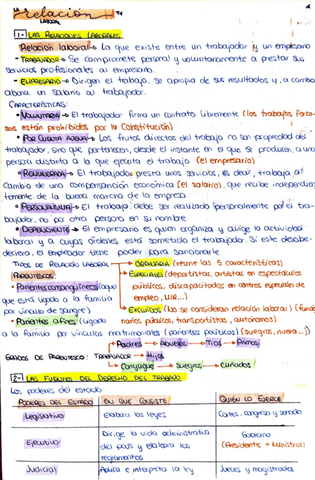 LA relación T1
LABORAL
1- LAS RELACIONES LABORALES
Relación laboral → La que existe entre un trabajador y un empresario
• TRABAJADOR → Se compromete personal y voluntariamente a prestar sus
servicios profesionales al empresario.
• EMPRESARIO → Dirigen el trabajo, se apropia de sus resultados y, a cambio
abona un salario al trabajador.
CARACTERÍSTICAS:
• VOLUNTARIA → El trabajador firma un contrato libremente (los trabajos forzo-
sos están prohibidos por la Constitución)
• POR CUENTA AJENA → Los frutos directos del trabajo no son propiedad del
trabajador, sino que pertenecen, desde el instante en el que se producen, a una
persona distinta a la que ejecuta el trabajo (el empresario)
• REMUNERADA → El trabajador presta unos servicios, es decir, trabaja al
cambio de una compensación económica (el salario), que recibe independien-
temente de la buena marcha de la empresa
• PERSONALÍSIMA → El trabajo debe ser realizado personalmente por el tra-
bajador, no por otra persona en su nombre
• DEPENDIENTE → El empresario es quien organiza y dirige la actividad
laboral y a cuyas órdenes está sometido el trabajador. Si este desobe-
deciera, el empleador tiene poder para sancionarle
TIPOS DE RELACIÓN LABORAL → ORDINARIA (reune las 5 características)
PARENTESCOS: ESPECIALES (deportistas, artistas en espectáculos
• Parientes consanguíneos (aquel públicos, discapacitados en centros especiales de
que está ligado a la familia empleo, MIR...)
por vínculo de sangre) EXCLUIDOS (No se consideran relación laboral) (funcio
• Parientes afines (ligado narios públicos, transportistas, autónomos)
a la familia por vínculos matrimoniales (parientes políticos) (suegros, nuera...)
Padres → Abuelos → Tíos → Primos
GRADOS DE PARENTESCO: TRABAJADOR → Hijos
Cónyuge → Suegros → Cuñados
2- LAS FUENTES DEL DERECHO DEL TRABAJO
Los poderes del estado
PODERES DEL ESTADO EN QUE CONSISTE QUIÉN LO EJERCE
Legislativo Elabora las leyes Cortes, congreso y senado
Ejecutivo Dirige la vida administrativa del país y elabora los reglamentos Gobierno (Presidente + Ministros)
Judicial Aplica e interpreta la ley Jueces y magistrados